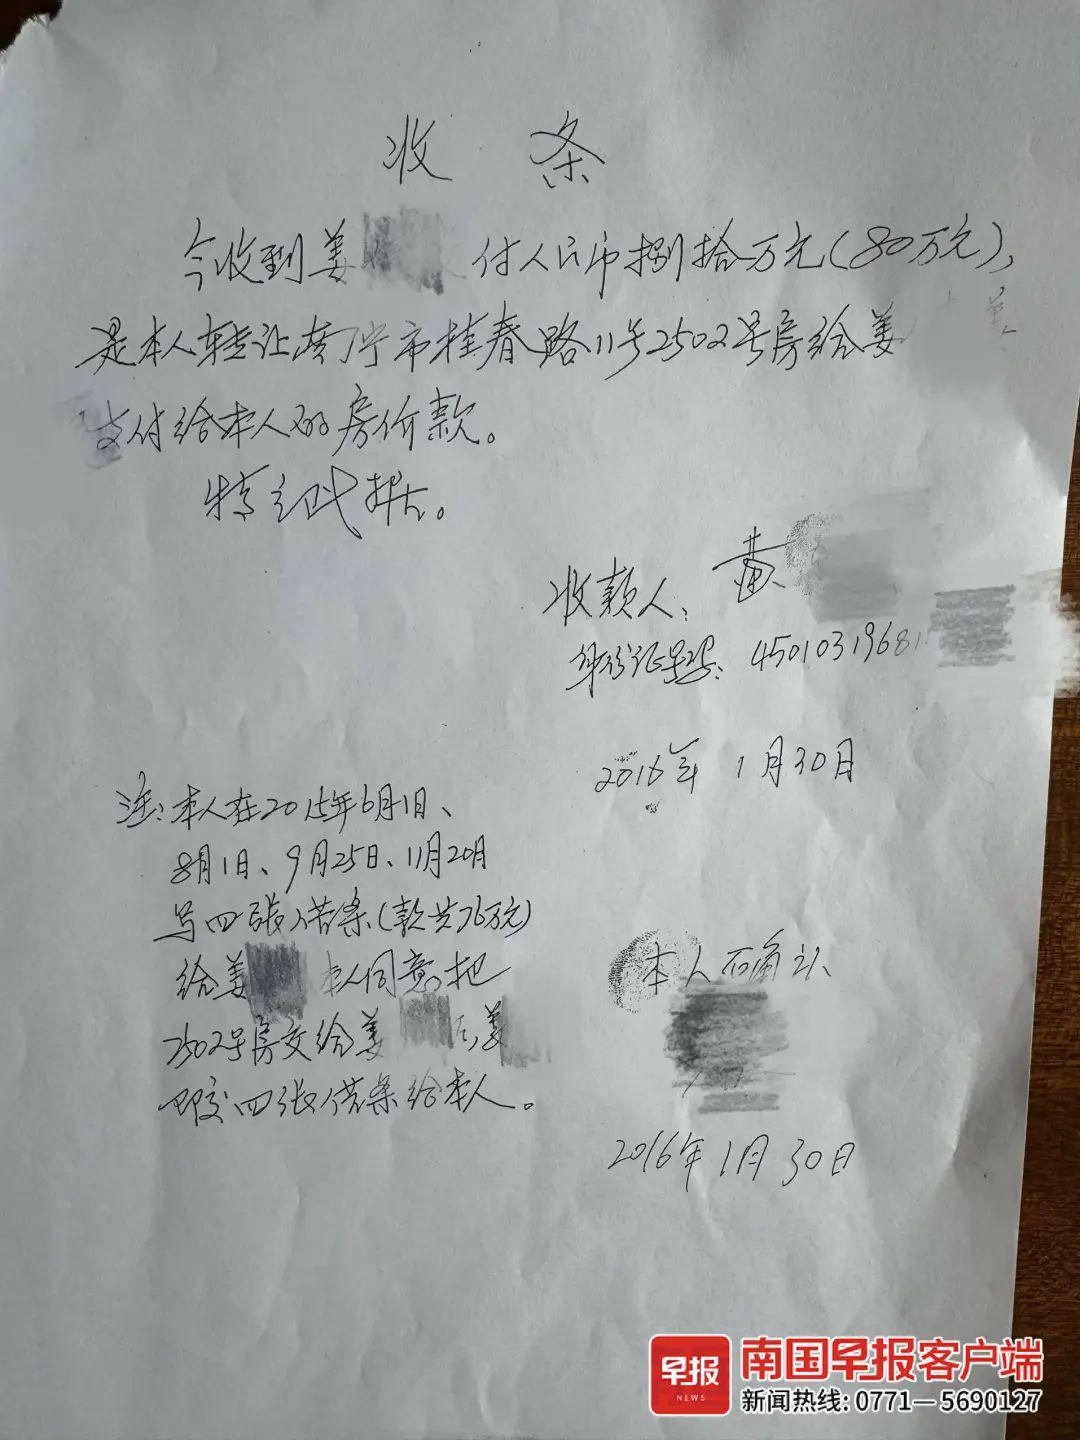 收 条
今收到姜 付人民币捌拾万元(80万元),
是本人转让南宁市桂春路11号2502号房给姜
支付给本人的房价款。
特立此据。
收款人: 黄
身份证号码: 45010319681
2016年 1月30日
注:本人在2015年6月1日、
8月1日、9月25日、11月20日
写四张借条(款共76万元)
给姜 本人同意把
2502号房交给姜 姜
即交四张借条给本人。
本人确认
2016年1月30日
早报
NEWS
南国早报客户端
新闻热线: 0771—5690127